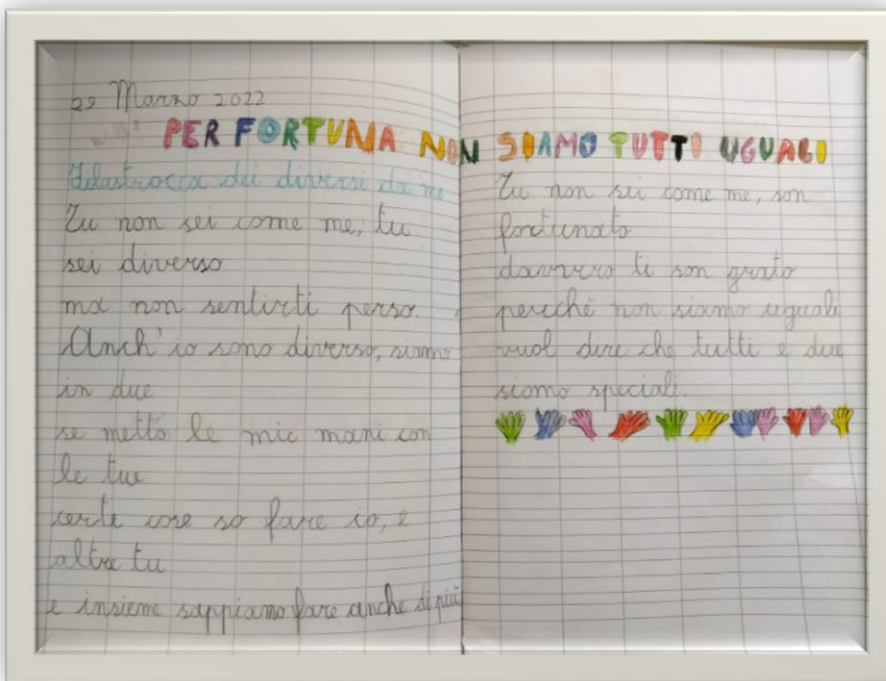 29 Marzo 2022
PER FORTUNA NON SIAMO TUTTI UGUALI
Filastrocca dei diversi da me
Tu non sei come me, tu
sei diverso
ma non sentirti perso.
Anch'io sono diverso, siamo
in due
se metto le mie mani con
le tue
certe cose so fare io, e
altre tu
e insieme sappiamo fare anche di più
Tu non sei come me, son
fortunato
davvero ti son grato
perché non siamo uguali
vuol dire che tutti e due
siamo speciali.